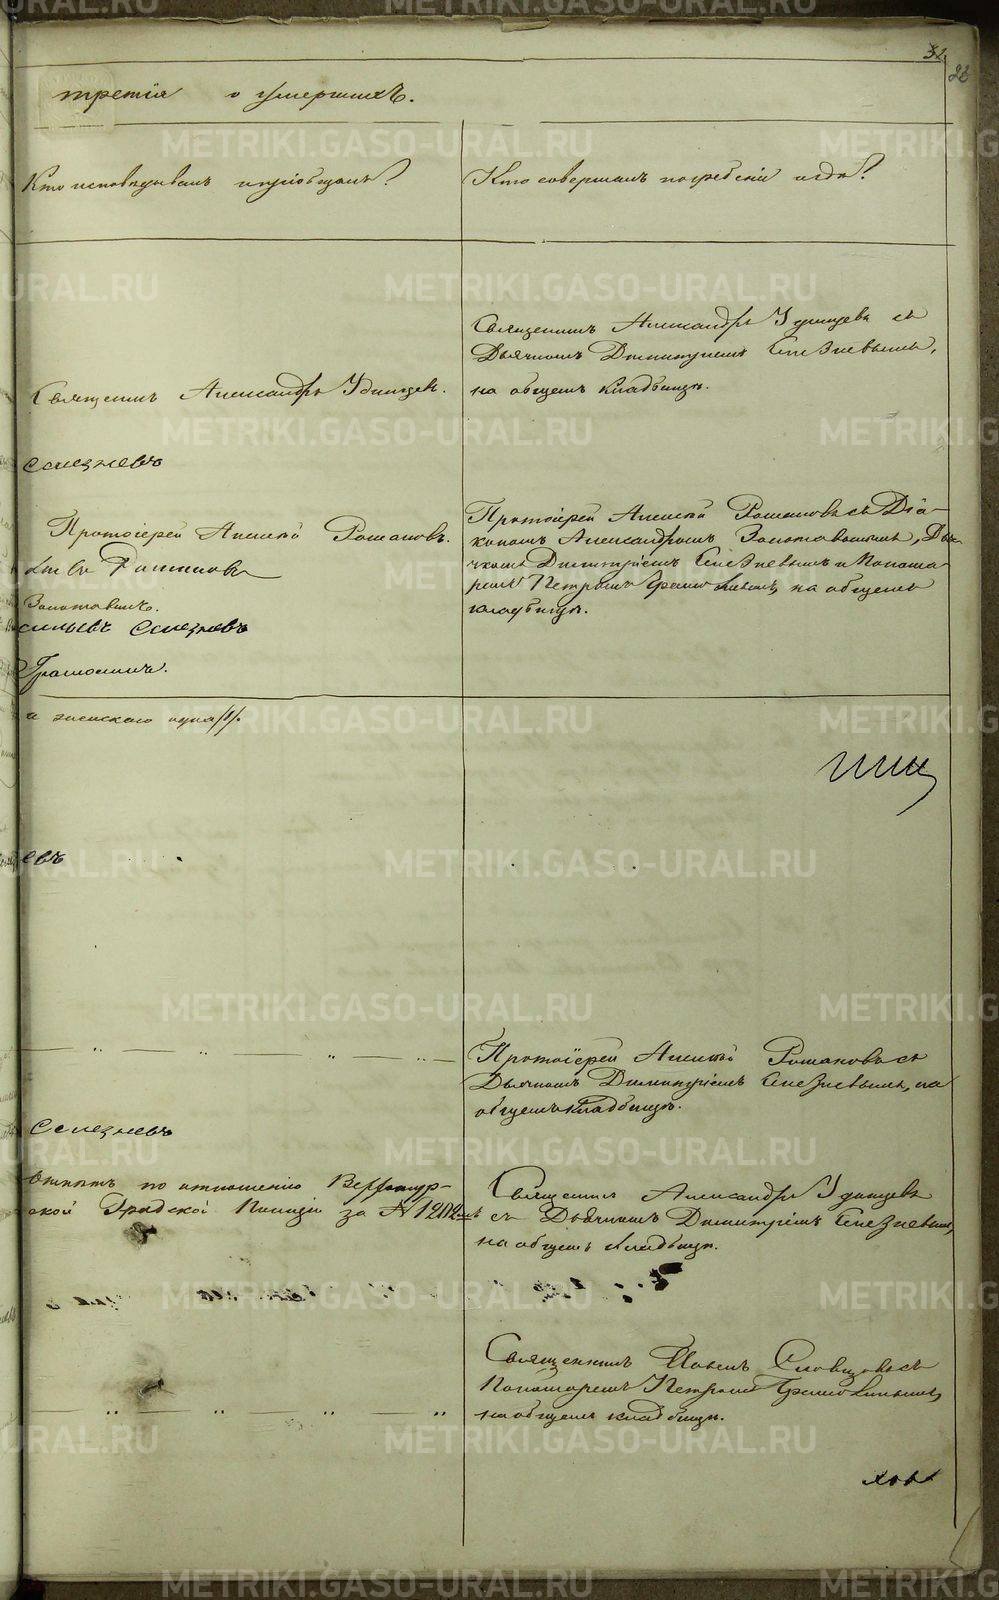 32
22
третiя о умершихъ.
Кто исповѣдывалъ и прiобщалъ?
Кто совершалъ погребенiе и гдѣ?
Священникъ Александръ Удинцевъ съ
Дьячкомъ Димитрiемъ Селезневымъ,
на общемъ кладбищѣ.
Священникъ Александръ Удинцевъ.
Селезневъ
Протоiерей Алексѣй Романовъ.
Романовъ
Золотавинъ.
Селезневъ
Грамолинъ.
Протоiерей Алексѣй Романовъ съ Дiа-
кономъ Александромъ Золотавинымъ, Дья-
чкомъ Димитрiемъ Селезневымъ и Понома-
ремъ Петромъ на общемъ
кладбищѣ.
а женскаго одна /1/.
евъ
Протоiерей Алексѣй Романовъ съ
Дьячкомъ Димитрiемъ Селезневымъ, на
общемъ кладбищѣ.
Селезневъ
по отношенiю Верхотур-
ской Градской Полицiи за №
Священникъ Александръ Удинцевъ
съ Дьячкомъ Димитрiемъ Селезневымъ,
на общемъ кладбищѣ.
Священникъ Словцовъ съ
Пономаремъ Петромъ
на общемъ кладбищѣ.
METRIKI.GASO-URAL.RU